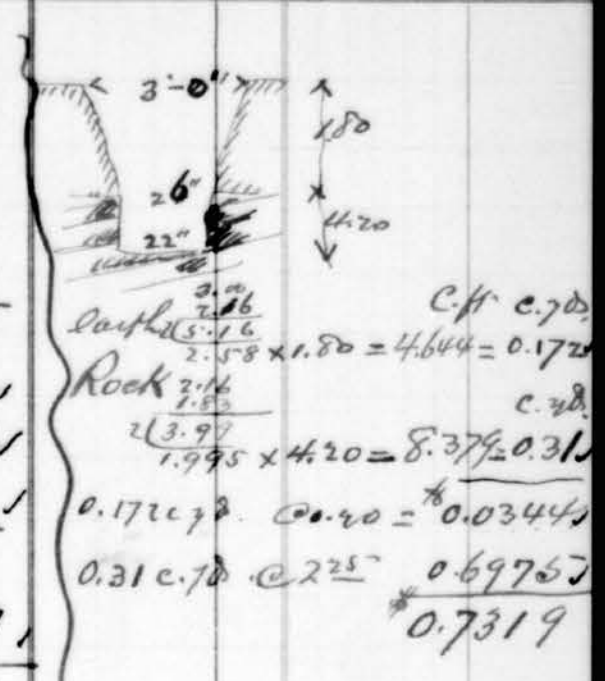 3'-0"
1.80
26"
4.20
22"
3.00
2.16
C.ft. c.yds.
earth 2(5.16
2.58 × 1.80 = 4.644 = 0.172
Rock 2.16
1.83
c.yds.
2(3.99
1.995 × 4.20 = 8.379 = 0.31
0.172 c yd. @ 0.20 = $0.0344
0.31 c.yd. @ 2 25 0.6975
$0.7319